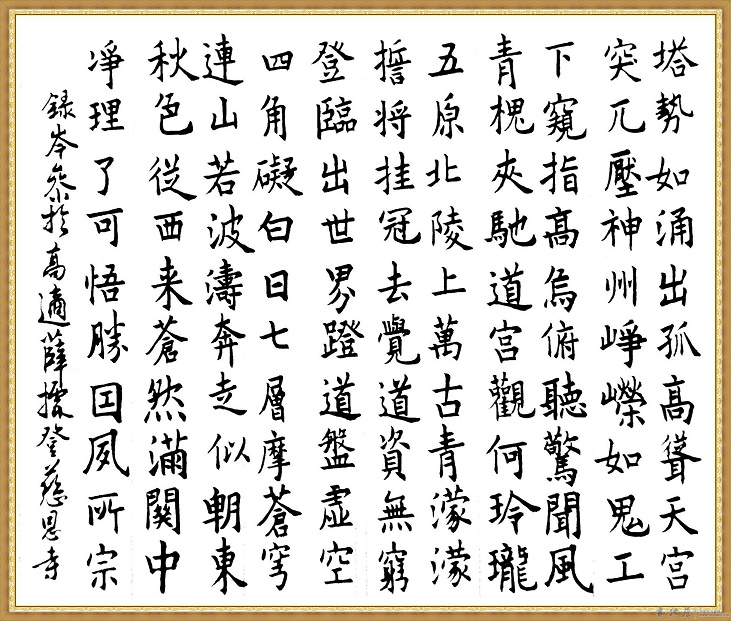 塔勢如涌出孤高聳天宮
突兀壓神州崢嶸如鬼工
下窺指高鳥俯聽驚聞風
青槐夾馳道宫觀何玲瓏
五原北陵上萬古青濛濛
誓将挂冠去覺道資無窮
登臨出世界蹬道盤虚空
四角礙白日七層摩蒼穹
連山若波濤奔走似朝東
秋色從西来蒼然滿関中
淨理了可悟勝因夙所宗
録岑参於高適薛據登慈恩寺